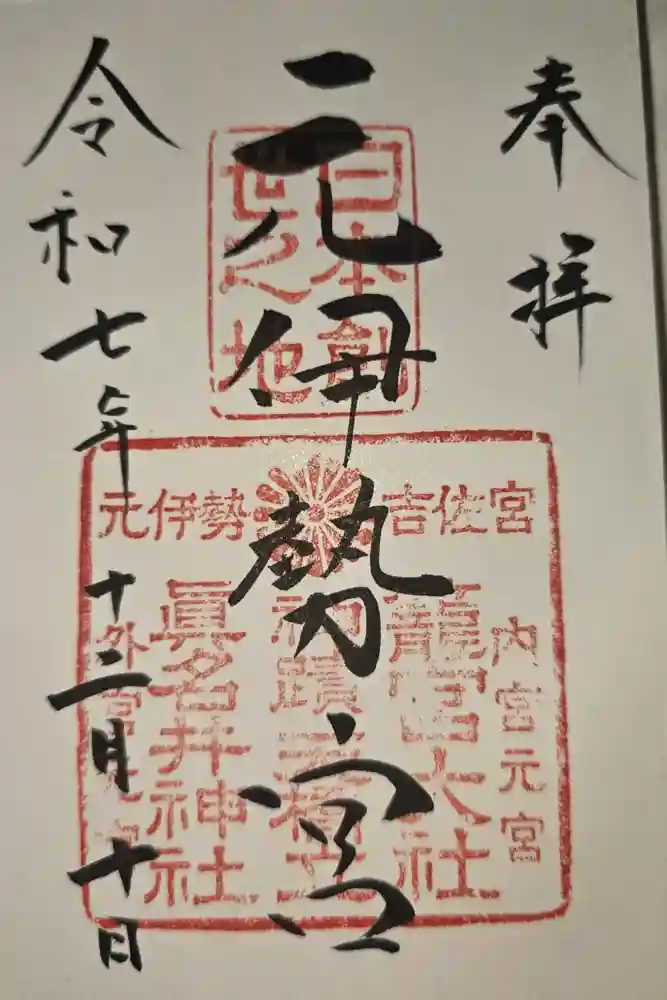 奉拝
元伊勢宮
日本創
世之地
吉佐宮
元伊勢
内宮元宮
龍宮大社
眞名井神社
外宮元宮
令和七年十二月十日